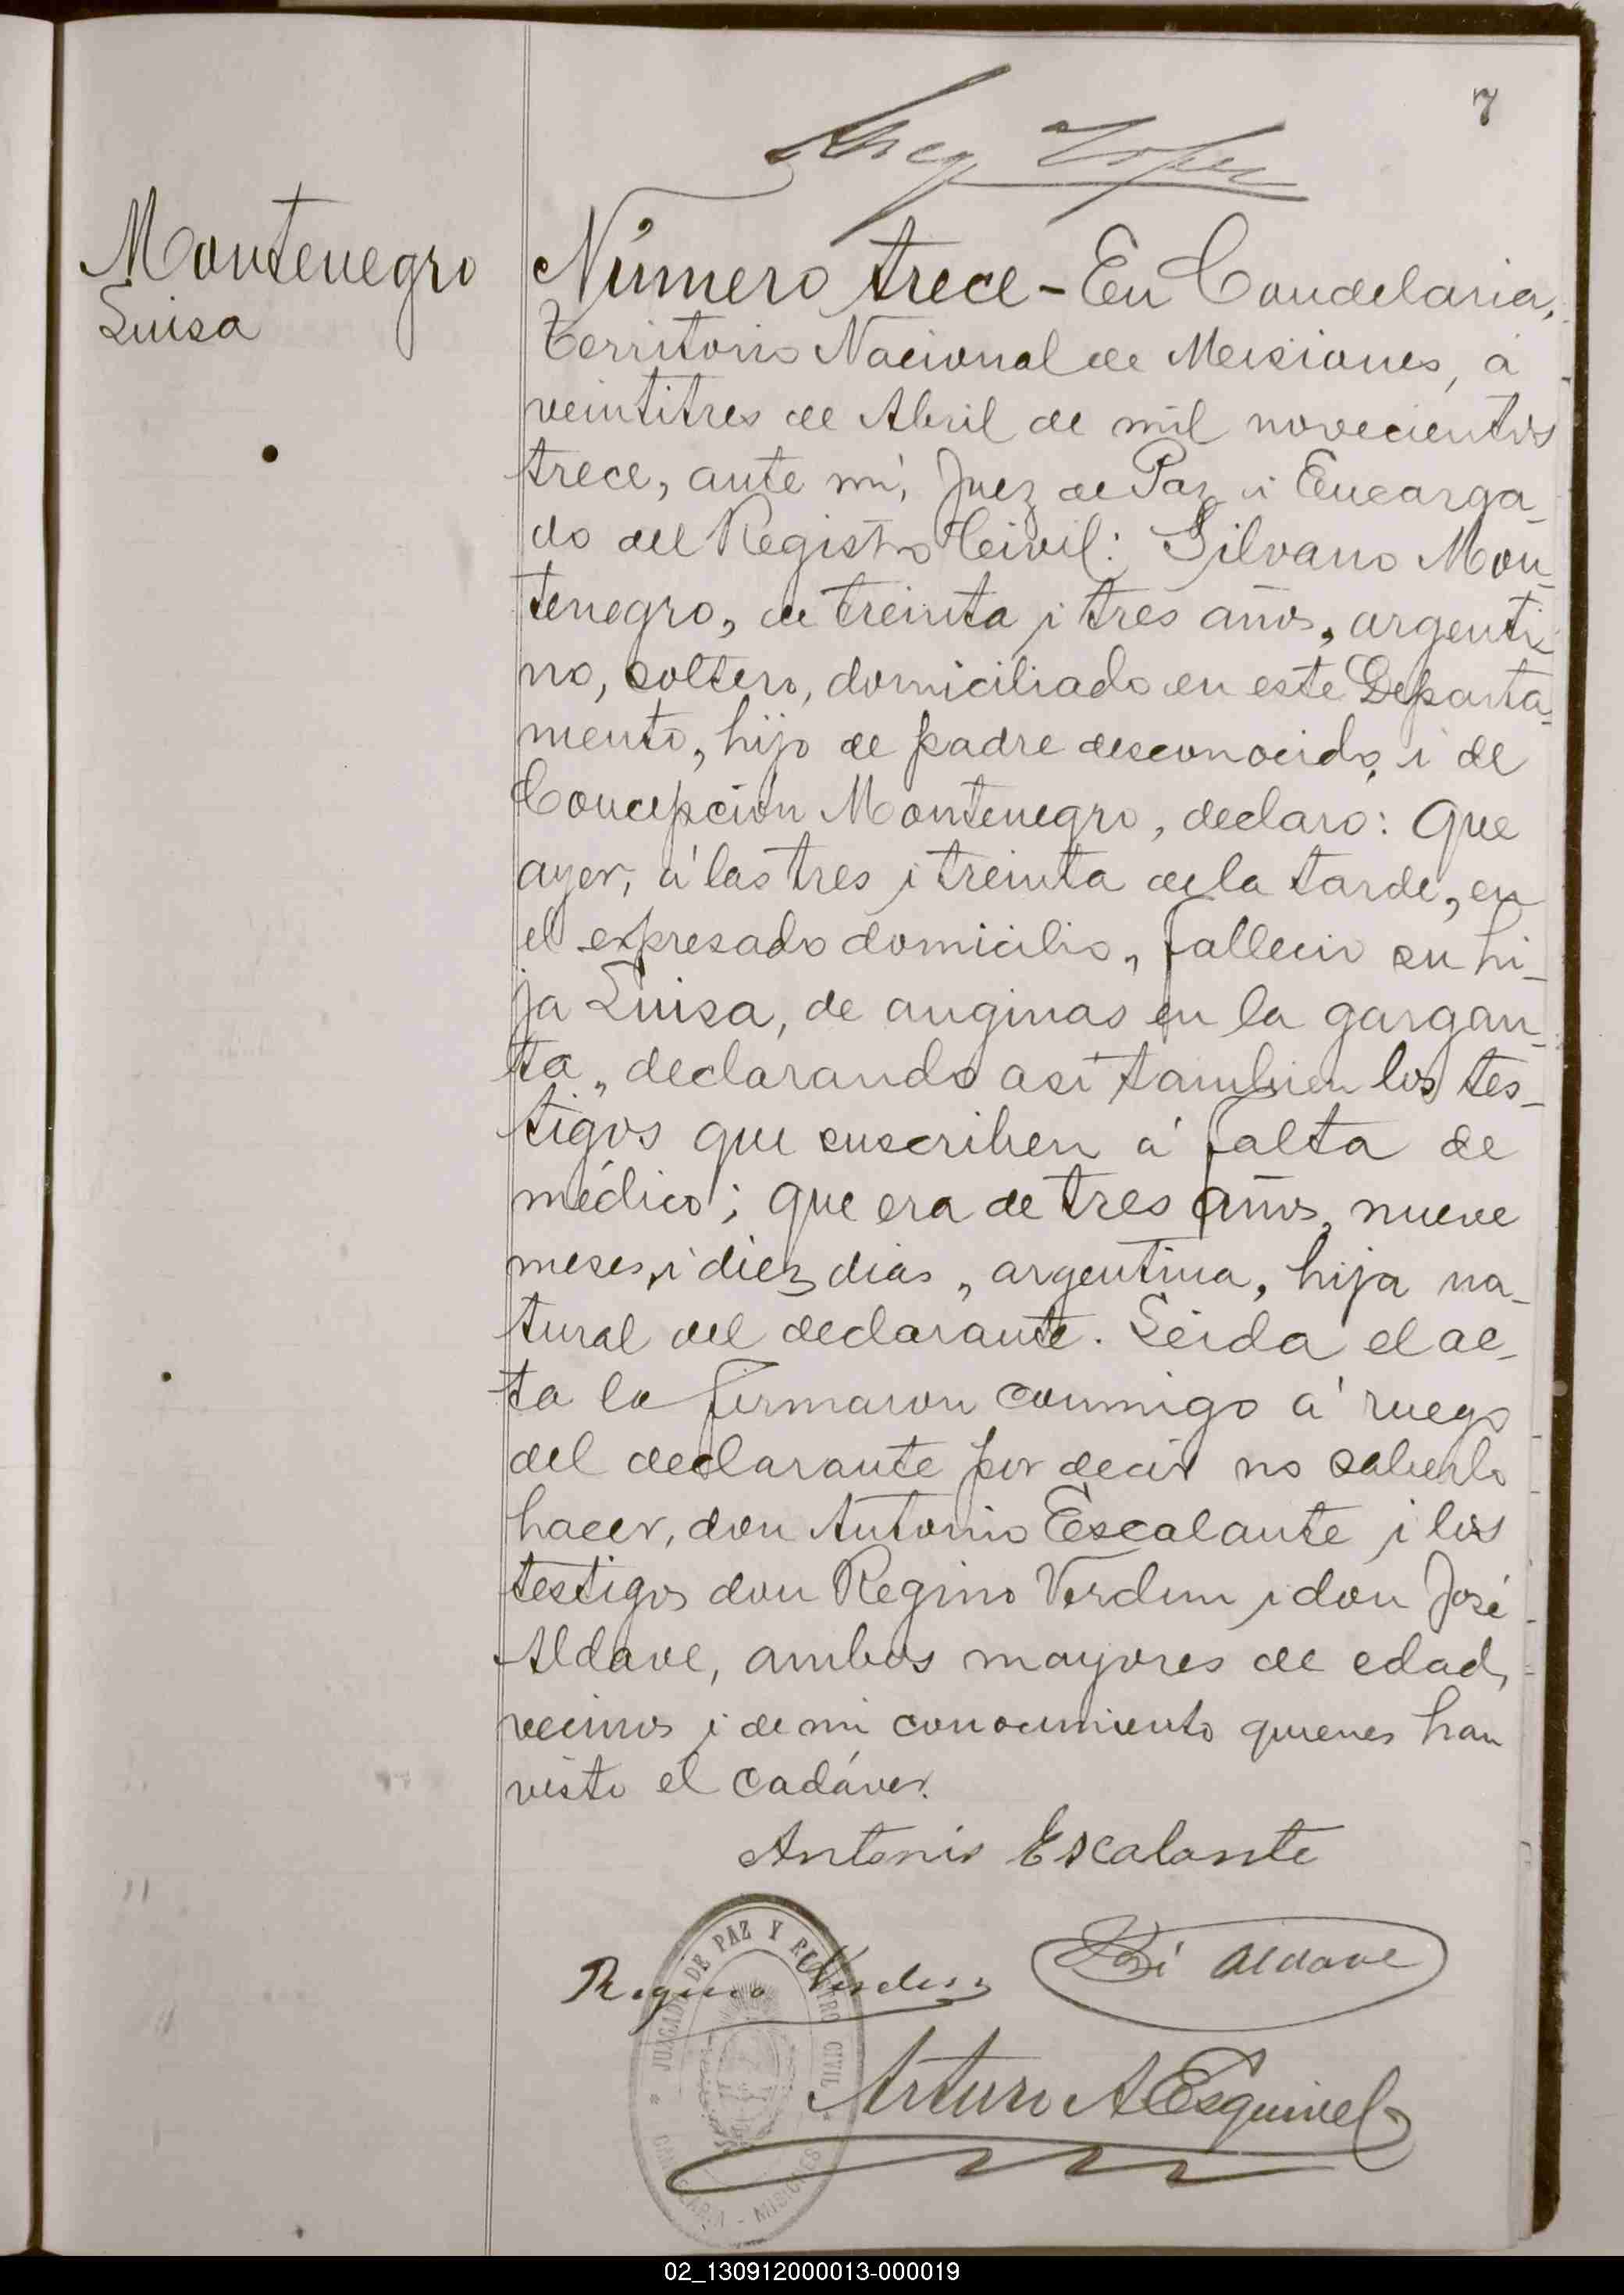 7
Lopez
Montenegro
Luisa
Número trece - En Candelaria,
Territorio Nacional de Misiones, á
veintitres de Abril de mil novecientos
trece, ante mí, Juez de Paz i Encarga-
do del Registro Civil: Silvano Mon-
tenegro, de treinta i tres años, argenti-
no, soltero, domiciliado en este Departa-
mento, hijo de padre desconocido, i de
Concepción Montenegro, declaró: Que
ayer, á las tres i treinta de la tarde, en
el expresado domicilio, falleció su hi-
ja Luisa, de anginas en la gargan-
ta, declarando así tambien los tes-
tigos que suscriben á falta de
médico; que era de tres años, nueve
meses, i diez dias, argentina, hija na-
tural del declarante. Leida el ac-
ta la firmaron conmigo á ruego
del declarante por decir no saberlo
hacer, don Antonio Escalante i los
testigos don Regino Verdun i don José
Aldave, ambos mayores de edad,
vecinos i de mi conocimiento quienes han
visto el cadáver.
Antonio Escalante
Regino Verdun
José Aldave
Arturo A Esquivel
JUZGADO DE PAZ Y REGISTRO CIVIL
CANDELARIA - MISIONES
02_130912000013-000019